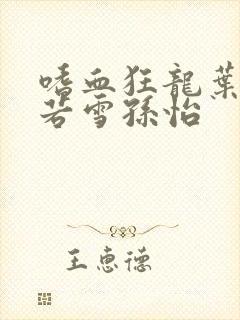 嗜血狂龍葉
若雪孫怡
王惠德